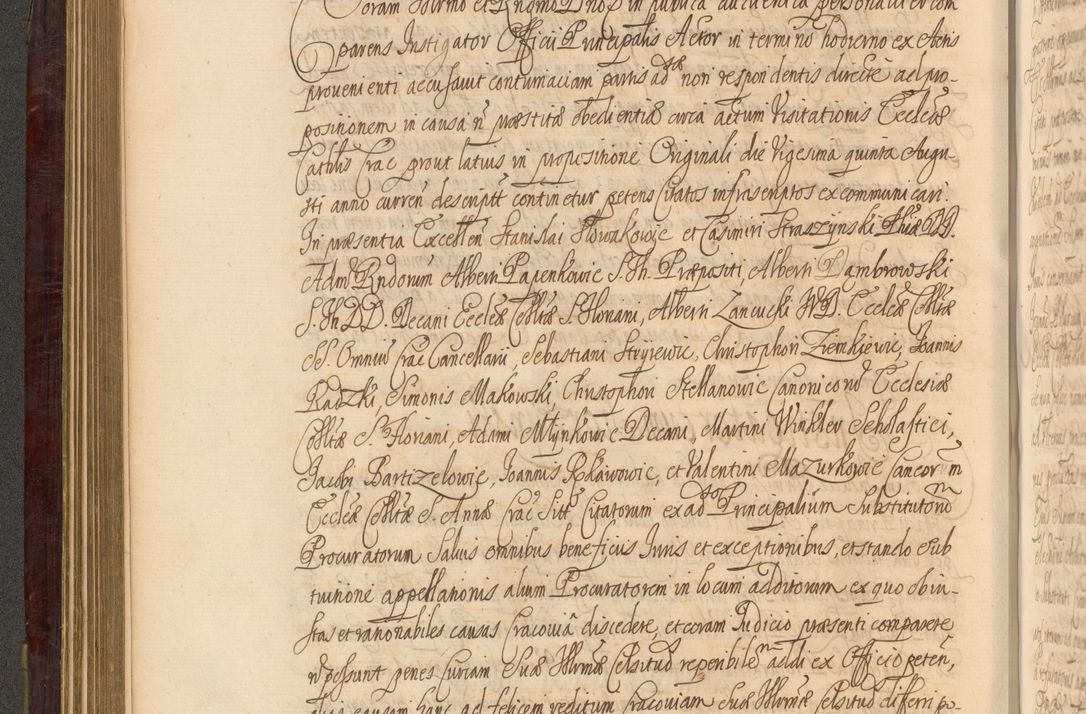 Coram Illrmo et Rndmo Dno in publica audientia personaliter com
parens Instigator Officii Principalis Actor in termino hodierno ex Actis
provenienti accusavit contumaciam partis adsæ non respondentis directe ad pro-
positionem in causa ñ præstitæ obedientiæ circa actum Visitationis Ecclesiæ
Cathlis Crac prout latius in propositione Originali die Vigesima quinta Augu-
sti anno curreñ descriptt continetur petens Citatos infrascriptos excommunicari.
In præsentia Excelleñ Stanislai Nowakowic et Casimiri Straszynski Phiæ DD.
Adm Rndorum Alberti Papenkowic S. Th. Præpositi, Alberti Dambrowski
S. Th. D.D. Decani Eccleæ Colltæ S. Floriani, Alberti Zancucki I.V.D. Eccleæ Colltæ
SS. Omniũ Crac Cancellarii, Sebastiani Stryiewic, Christophori Ziemkiewic, Joannis
Radzki, Simonis Makowski, Christophori Stellanowic Canonicorũ Ecclesiæ
Colltæ S. Floriani, Adami Młynkowic Decani, Martini Winkler Scholastici,
Jacobi Bartizelowic, Joannis Rokawowic, et Valentini Mazurkowic Cancorm̃
Eccleæ Colltæ S. Annæ Crac Sitt Citatorum ex adso Principalium Substitutorũ
Procuratorum Salvis omnibus beneficiis Juris et exceptionibus, et stando Sub
tuitione appellationis alium Procuratorem in locum additorum ex quo ob in-
stas et rationabiles causas Cracoviâ discedere, et coram Judicio præsenti comparere
ñ possunt penes Curiam Suæ Illrmæ Celsitud reperibilem addi ex Officio peteñ,
causam hanc ad felicem reditum Cracoviam Suæ Illrmæ Celsitud differri po-